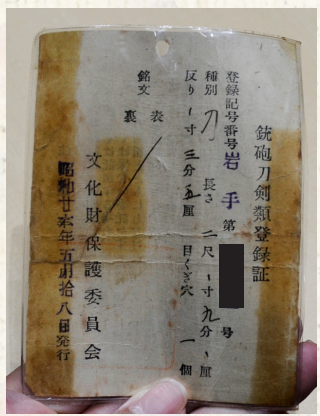 銃砲刀剣類登録証
登録記号番号岩手第 号
種別 刀 長さ 二尺 寸九分 厘
反り 寸三分五厘 目くぎ穴 一個
銘文 表
裏
文化財保護委員会
昭和廿六年五月拾八日発行